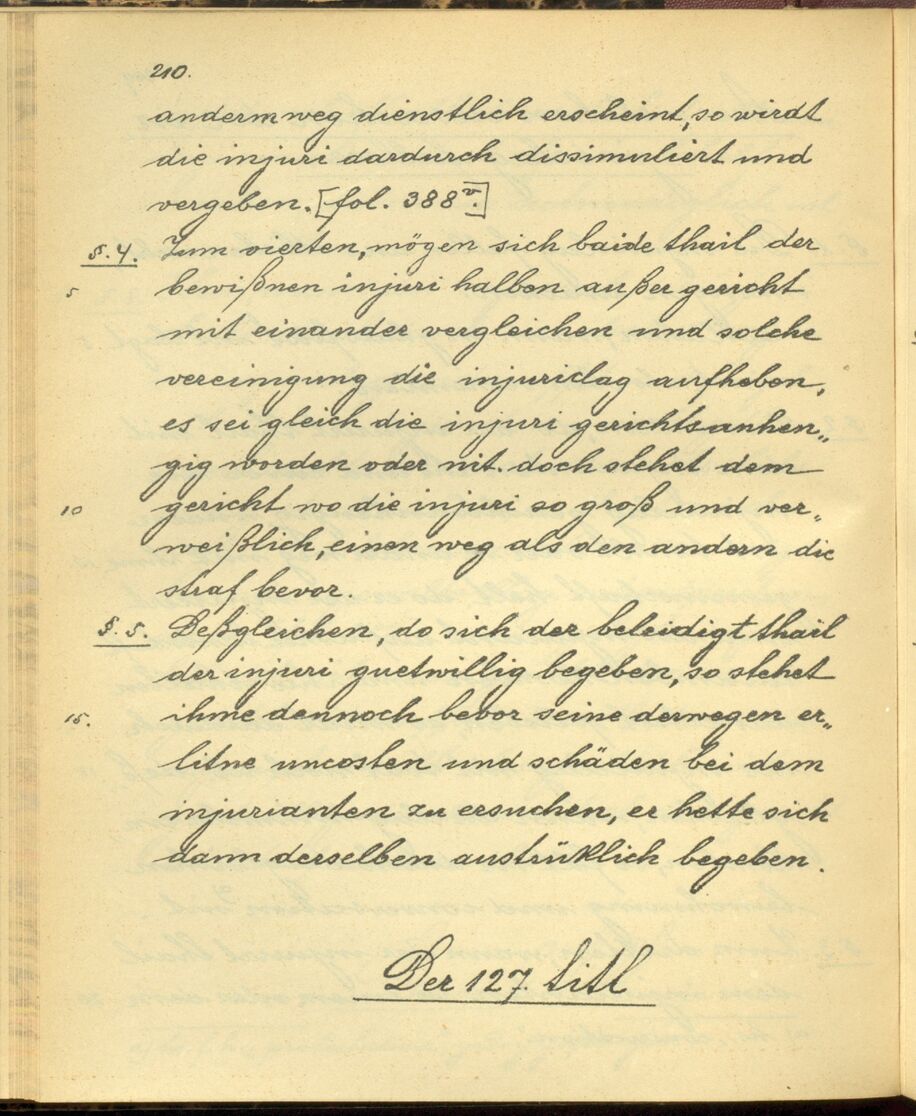 210.
anderm weg dienstlich erscheint, so wirdt
die injuri dardurch dissimuliert und
vergeben. [fol. 388 v.]
§. 4. Zum vierten, mögen sich baide thail der
5 bewißnen injuri halben außer gericht
mit einander vergleichen und solche
vereinigung die injuriclag aufheben,
es sei gleich die injuri gerichtsanhen„
gig worden oder nit. doch stehet dem
10 gericht wo die injuri so groß und ver„
weißlich, einen weg als den andern die
straf bevor.
§. 5. Deßgleichen, do sich der beleidigt thail
der injuri guetwillig begeben, so stehet
15. ihme dennoch bevor seine derwegen er„
litne uncosten und schäden bei dem
injurianten zu ersuchen, er hette sich
dann derselben austrüklich begeben.
Der 127. titl